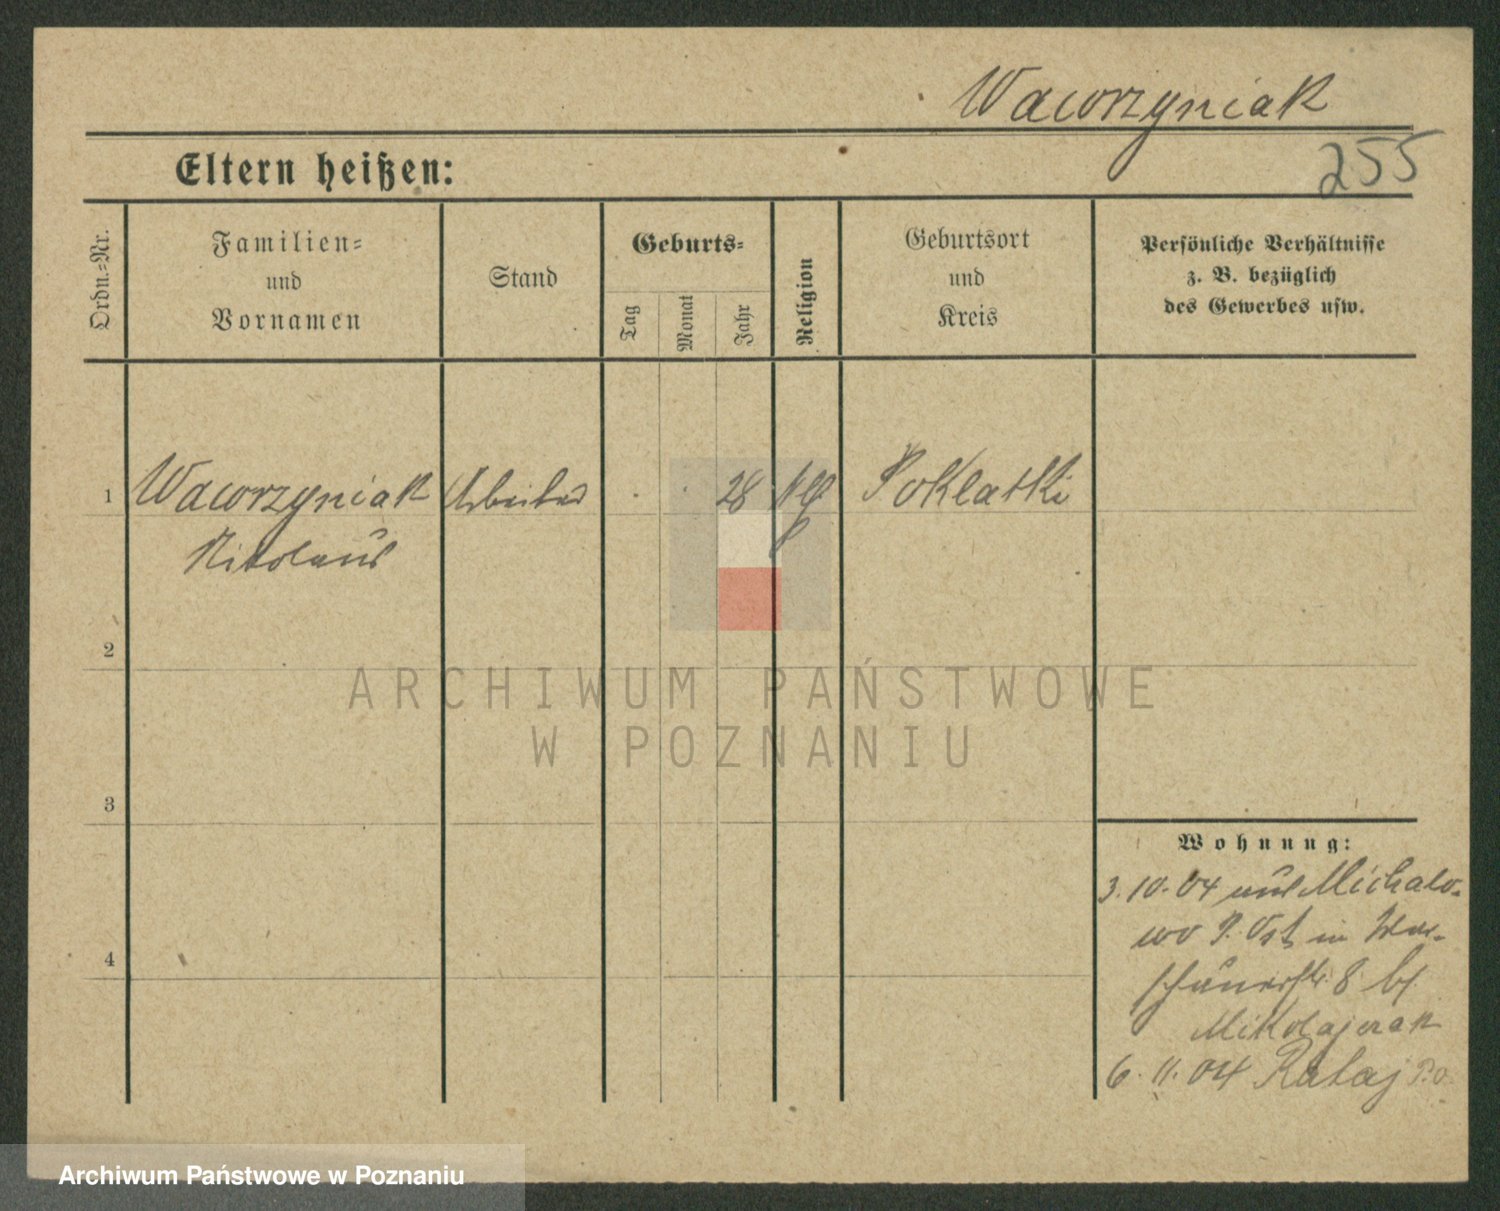 Wawrzyniak
255
Eltern heißen:
Ordn.=Nr.
Familien=
und
Vornamen
Stand
Geburts=
Tag
Monat
Jahr
Religion
Geburtsort
und
Kreis
Persönliche Verhältnisse
z. B. bezüglich
des Gewerbes usw.
1
Wawrzyniak
Nikolaus
Arbeiter
28
Poklatki
2
3
4
Wohnung:
3.10.04 aus Michalo-
wo P. Ost in War-
schauerstr. 8 bf.
Mikolajczak
6.11.04 Rataj P.O.
ARCHIWUM PAŃSTWOWE
W POZNANIU
Archiwum Państwowe w Poznaniu